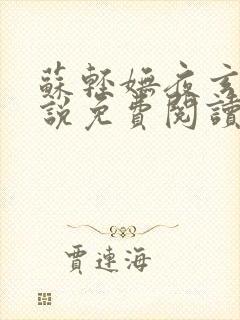 蘇輕嫵夜玄
說免費閱讀
賈連海